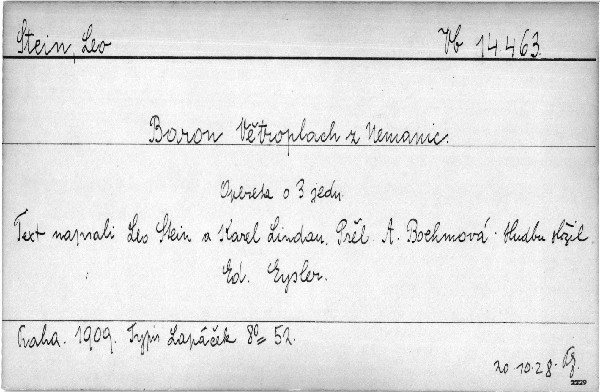 Stein, Leo
Vb 14463
Baron Větroplach z Nemanic.
Opereta o 3 jedn.
Text napsali Leo Stein a Karel Lindau. Přel. A. Bochmová. Hudbu složil
Ed. Eysler.
Praha. 1909. Typis Lapáček 8º= 52.
20.10.28.
2229